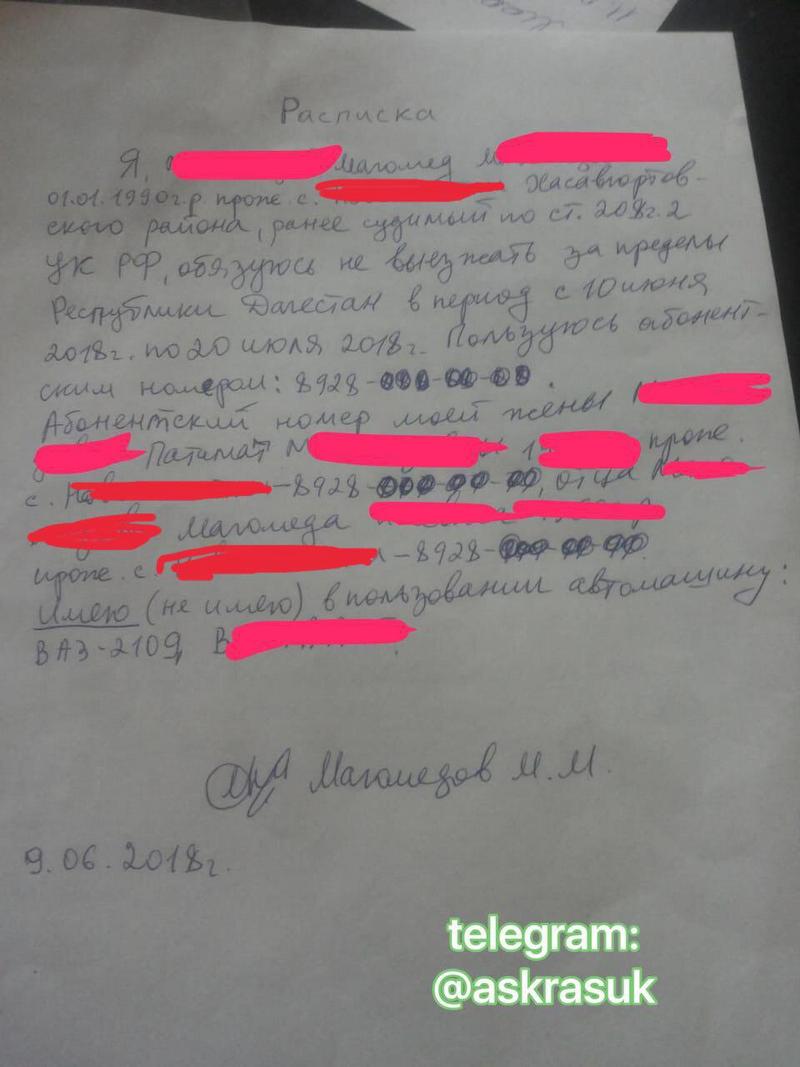 Расписка
Я, Магомед М
01.01.1990г.р. прож. с. Хасавюртов-
ского района, ранее судимый по ст. 208ч.2
УК РФ, обязуюсь не выезжать за пределы
Республики Дагестан в период с 10 июня
2018г. по 20 июля 2018г. Пользуюсь абонент-
ским номером: 8928-
Абонентский номер моей жены
Патимат М 1 прож.
с. -8928- , отца
Магомеда
прож. с. -8928-
Имею (не имею) в пользовании автомашину:
ВАЗ-2109, В
Магомедов М.М.
9.06.2018г.
telegram:
@askrasuk